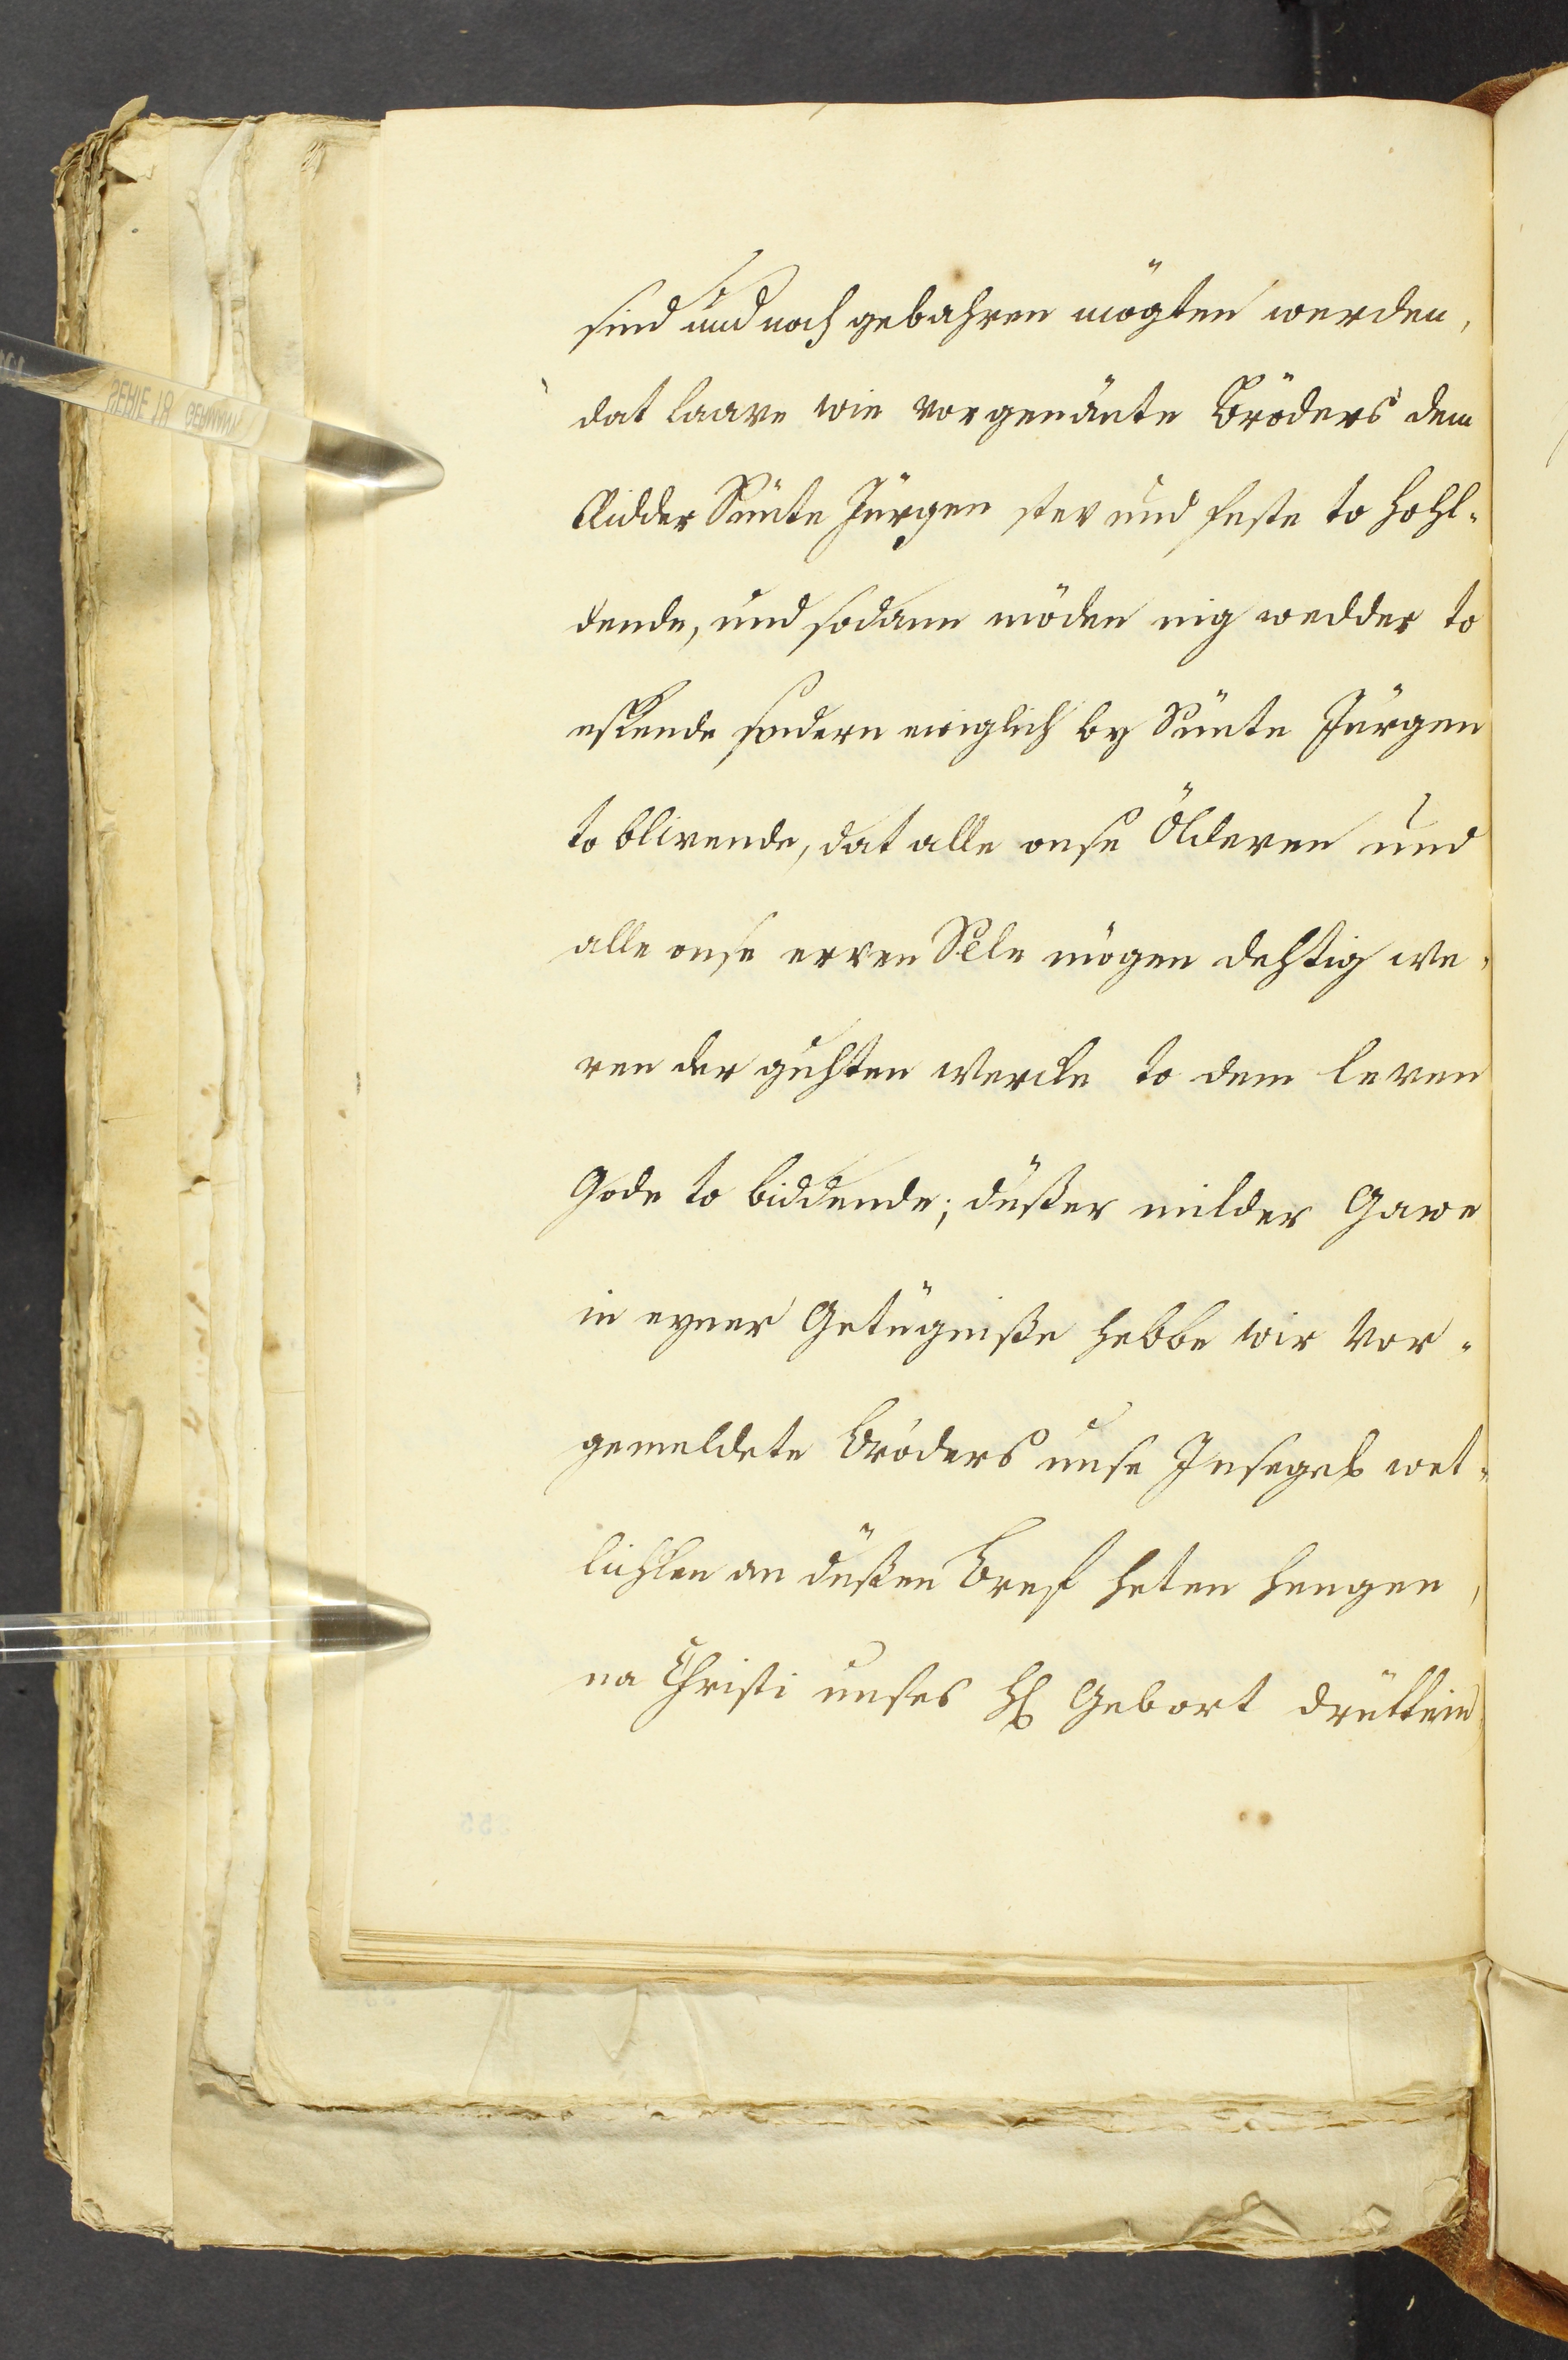 sind und noch gebahren mögten werden,
dat laave wie vorgenänte Bröders dem
Ridder Sünte Jürgen stev und feste to hohl-
dende, und sodann möden nig wedder to
eskende sondern ewiglich by Sünte Jürgen
to blivende, dat alle onse Ölderen und
alle onse erven Sele mögen dehftig we-
ren der guhten Wercke to dem leven
Gode to biddende; düßer milder Gawe
in eyner Getügniße hebbe wir vor-
gemeldete Bröders unse Insegel wet-
lichken an düßen Bref heten hengen,
na Christi unses H Gebort drüttein